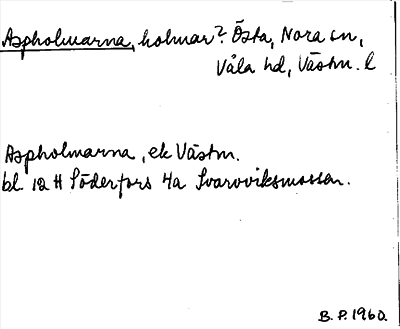 Aspholmarna, holmar? Östa, Nora sn,
Våla hd, Västm. l
Aspholmarna, ek Västm.
bl. 12 H Söderfors 4a Svarviksmossen.
B. P. 1960.